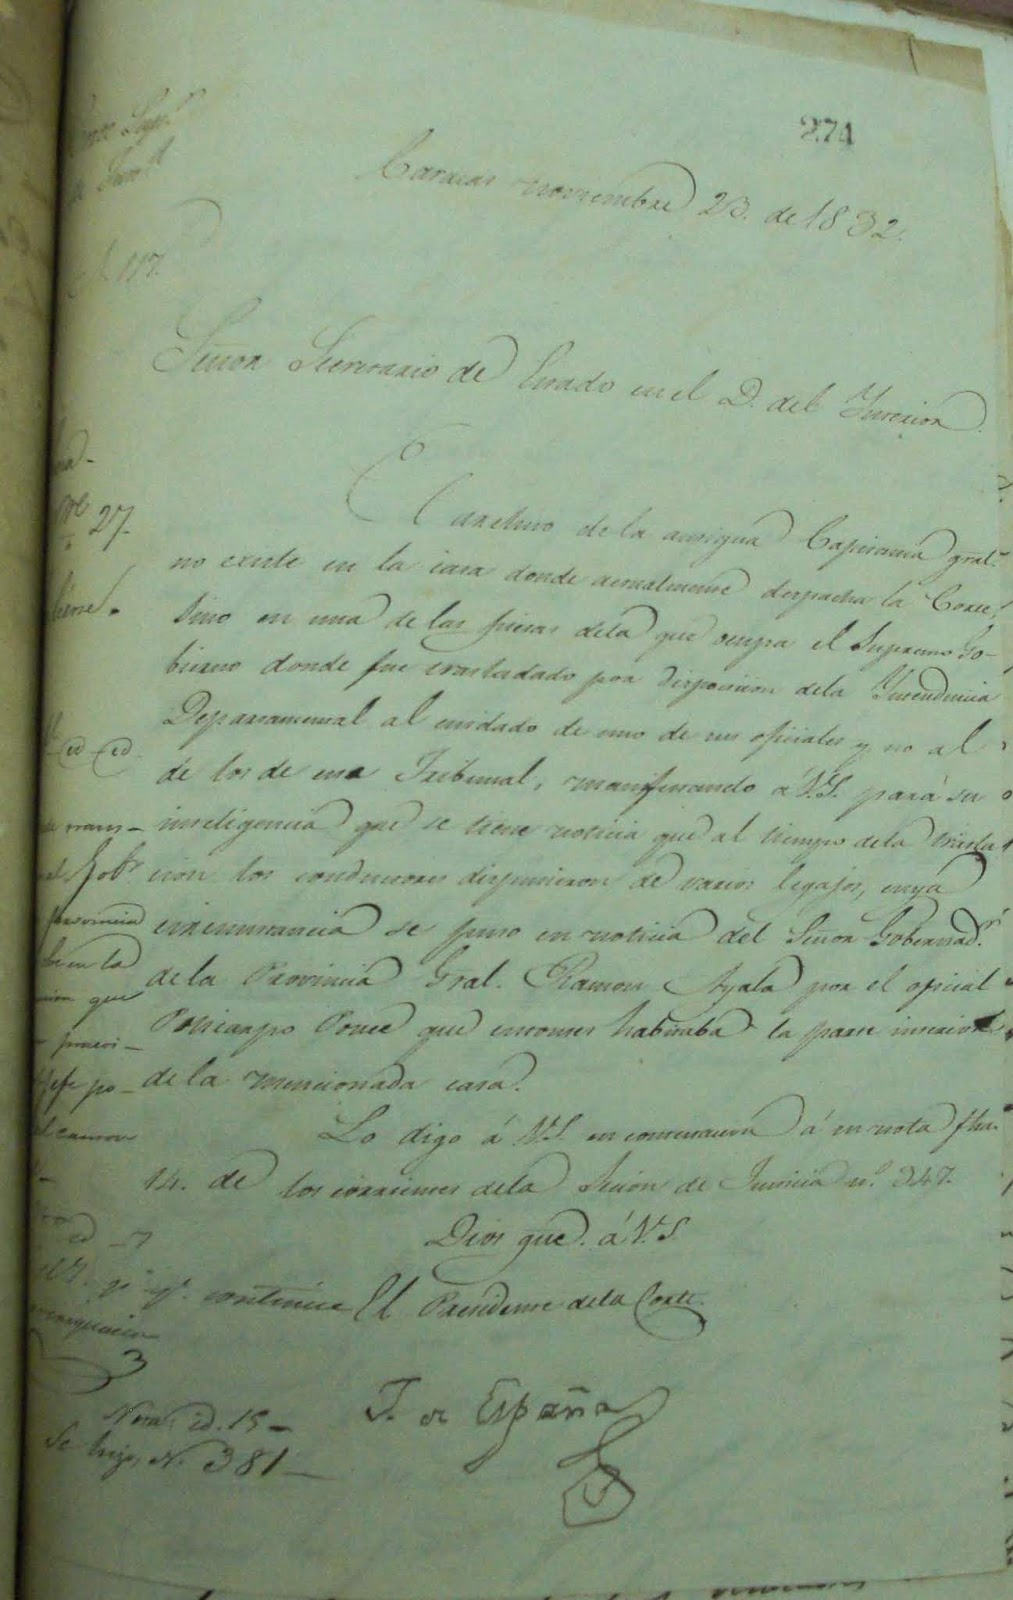 274
Caracas noviembre 23. de 1832.
N. 117.
Señor Secretario de Estado en el D. del Interior.
El archivo de la antigua Capitania gral.
no existe en la casa donde actualmente despacha la Corte,
sino en una de las piezas dela que ocupa el Supremo Go-
bierno donde fue trasladado por disposicion dela Yntendencia
Departamental al cuidado de uno de sus oficiales y no al
de los de este Tribunal, manifestando á V.S. para su
inteligencia que se tiene noticia que al tiempo dela trasla
cion los conductores dispusieron de varios legajos, cuya
circunstancia se puso en noticia del Señor Gobernad.r
de la Provincia Gral. Ramon Ayala por el oficial
Policarpo Ponce que entonces habitaba la parte interior
de la mencionada casa.
Lo digo á V.S. en contestacion á su nota fha.
14. de los corrientes dela Seccion de Justicia n.º 347.
Dios gue. á V.S.
El Presidente dela Corte.
F. de España
27.
provincia
en la
que
continúe
Nota id. 15 -
Se hizo, N. 381 -